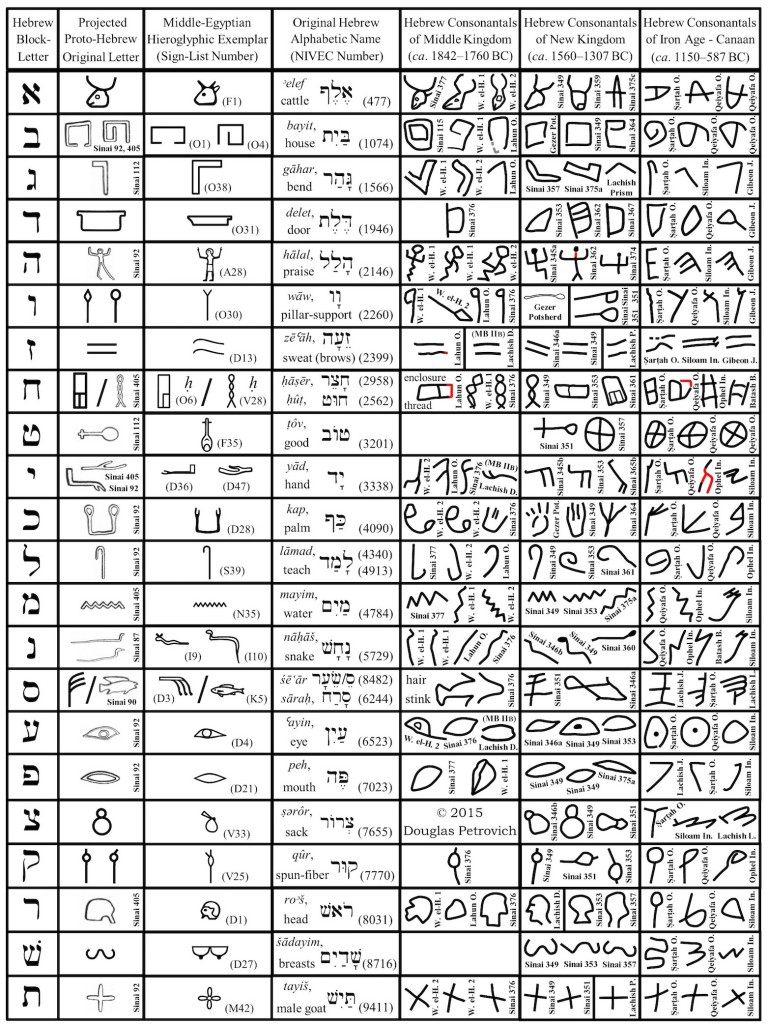 Hebrew Block-Letter | Projected Proto-Hebrew Original Letter | Middle-Egyptian Hieroglyphic Exemplar (Sign-List Number) | Original Hebrew Alphabetic Name (NIVEC Number) | Hebrew Consonantals of Middle Kingdom (ca. 1842–1760 BC) | Hebrew Consonantals of New Kingdom (ca. 1560–1307 BC) | Hebrew Consonantals of Iron Age - Canaan (ca. 1150–587 BC)
א | (F1) | ʾelef אֶלֶף cattle (477) | Sinai 377 W. el-H. 1 W. el-H. 2 | Sinai 349 Sinai 359 Sinai 375c | Ṣarṭah O. Qeiyafa O. Qeiyafa O.
ב | Sinai 92, 405 | (O1) (O4) | bayit, בַּיִת house (1074) | Sinai 115 W. el-H. 1 Lahun O. | Gezer Pot. Sinai 349 Sinai 364 | Ṣarṭah O. Qeiyafa O. Qeiyafa O.
ג | Sinai 112 | (O38) | gāhar, גָּהַר bend (1566) | W. el-H. 1 W. el-H. 2 Lahun O. | Sinai 357 Sinai 375a Lachish Prism | Ṣarṭah O. Siloam In. Gibeon J.
ד | (O31) | delet, דֶּלֶת door (1946) | Sinai 376 | Sinai 353 Sinai 362 Sinai 367 | Ṣarṭah O. Qeiyafa O. Gibeon J.
ה | Sinai 92 | (A28) | hālal, הָלַל praise (2146) | W. el-H. 1 W. el-H. 1 W. el-H. 2 | Sinai 345a Sinai 362 Sinai 374 | Ṣarṭah O. Siloam In. Gibeon J.
ו | (O30) | wāw, וָו pillar-support (2260) | W. el-H. 1 W. el-H. 2 Lahun O. Sinai 376 | Gezer Potsherd Sinai 351 Sinai 351 | Ṣarṭah O. Qeiyafa O. Siloam In. Gibeon J.
ז | (D13) | zēʿāh, זֵעָה sweat (brows) (2399) | Lahun O. (MB IIB) Lachish D. | Sinai 346a Sinai 349 Lachish P. | Ṣarṭah O. Siloam In. Gibeon J.
ח | Sinai 405 | ḥ (O6) / ḥ (V28) | ḥāṣēr, חָצֵר (2958) ḥûṭ, חוּט (2562) | enclosure thread Lahun O. W. el-H. 1 Sinai 376 | Sinai 349 Sinai 353 Sinai 361 | Ṣarṭah O. Qeiyafa O. Ophel In. Batash B.
ט | Sinai 112 | (F35) | ṭôv, טוֹב good (3201) | Sinai 351 Sinai 357 | Ṣarṭah O. Qeiyafa O. Qeiyafa O.
י | Sinai 405 Sinai 92 | (D36) (D47) | yād, יָד hand (3338) | W. el-H. 2 Lahun O. Sinai 376 (MB IIB) Lachish D. | Sinai 345b Sinai 353 Sinai 365b | Ṣarṭah O. Qeiyafa O. Ophel In. Siloam In.
כ | Sinai 92 | (D28) | kap, כַּף palm (4090) | W. el-H. 2 W. el-H. 2 Sinai 376 | Gezer Pot. Sinai 349 Sinai 364 | Ṣarṭah O. Qeiyafa O. Siloam In.
ל | Sinai 92 | (S39) | lāmad, לָמַד teach (4340) (4913) | Sinai 377 W. el-H. 2 Lahun O. | Sinai 349 Sinai 353 Sinai 361 | Ṣarṭah O. Qeiyafa O. Ophel In.
מ | Sinai 405 | (N35) | mayim, מַיִם water (4784) | Sinai 377 W. el-H. 1 W. el-H. 2 | Sinai 349 Sinai 353 Sinai 375a | Qeiyafa O. Ophel In. Siloam In.
נ | Sinai 87 | (I9) (I10) | nāḥāš, נָחָשׁ snake (5729) | W. el-H. 1 W. el-H. 1 Lahun O. Sinai 376 | Sinai 346b Sinai 349 Sinai 360 | Qeiyafa O. Ophel In. Batash B. Siloam In.
ס | Sinai 90 | (D3) / (K5) | śēʿār ס/שֵׂעָר (8482) sāraḥ, סָרַח (6244) | hair stink Sinai 376 | Sinai 351 Sinai 346a | Lachish J. Ṣarṭah O. Lachish L.
ע | Sinai 92 | (D4) | ʿayin, עַיִן eye (6523) | W. el-H. 2 Sinai 376 (MB IIB) Lachish D. | Sinai 346a Sinai 349 Sinai 353 | Ṣarṭah O. Qeiyafa O. Siloam In.
פ | Sinai 92 | (D21) | peh, פֶּה mouth (7023) | Sinai 377 W. el-H. 1 | Sinai 349 Sinai 349 Sinai 375a | Lachish J. Ṣarṭah O. Siloam In.
צ | (V33) | ṣərôr, צְרוֹר sack (7655) | © 2015 Douglas Petrovich | Sinai 346b Sinai 349 Sinai 351 | Ṣarṭah O. Siloam In. Lachish L.
ק | (V25) | qûr, קוּר spun-fiber (7770) | Sinai 376 | Sinai 349 Sinai 351 Sinai 353 | Ṣarṭah O. Qeiyafa O. Ophel In.
ר | Sinai 405 | (D1) | roʾš, רֹאשׁ head (8031) | W. el-H. 1 Lahun O. Sinai 376 | Lachish D. Sinai 353 Sinai 357 | Ṣarṭah O. Qeiyafa O. Siloam In.
שׁ | (D27) | šādayim, שָׁדַיִם breasts (8716) | Sinai 349 Sinai 353 Sinai 357 | Ṣarṭah O. Qeiyafa O. Siloam In.
ת | Sinai 92 | (M42) | tayiš, תַּיִשׁ male goat (9411) | W. el-H. 2 W. el-H. 2 Sinai 376 | Sinai 349 Sinai 351 Lachish P. | Ṣarṭah O. Qeiyafa O. Siloam In.